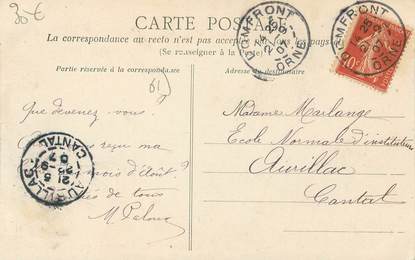 30€
CARTE POSTALE
La correspondance au recto n'est pas acceptée par tous les pays
(Se renseigner à la Poste)
Partie réservée à la correspondance
Adresse du destinataire
61)
DOMFRONT
ORNE
DOMFRONT
ORNE
10c
Que devenez-vous.
reçu ma
mois d'Août.
de tous
M. Paloux
AURILLAC
CANTAL
Madame Marlange
Ecole Normale d'instituteurs
Aurillac
Cantal